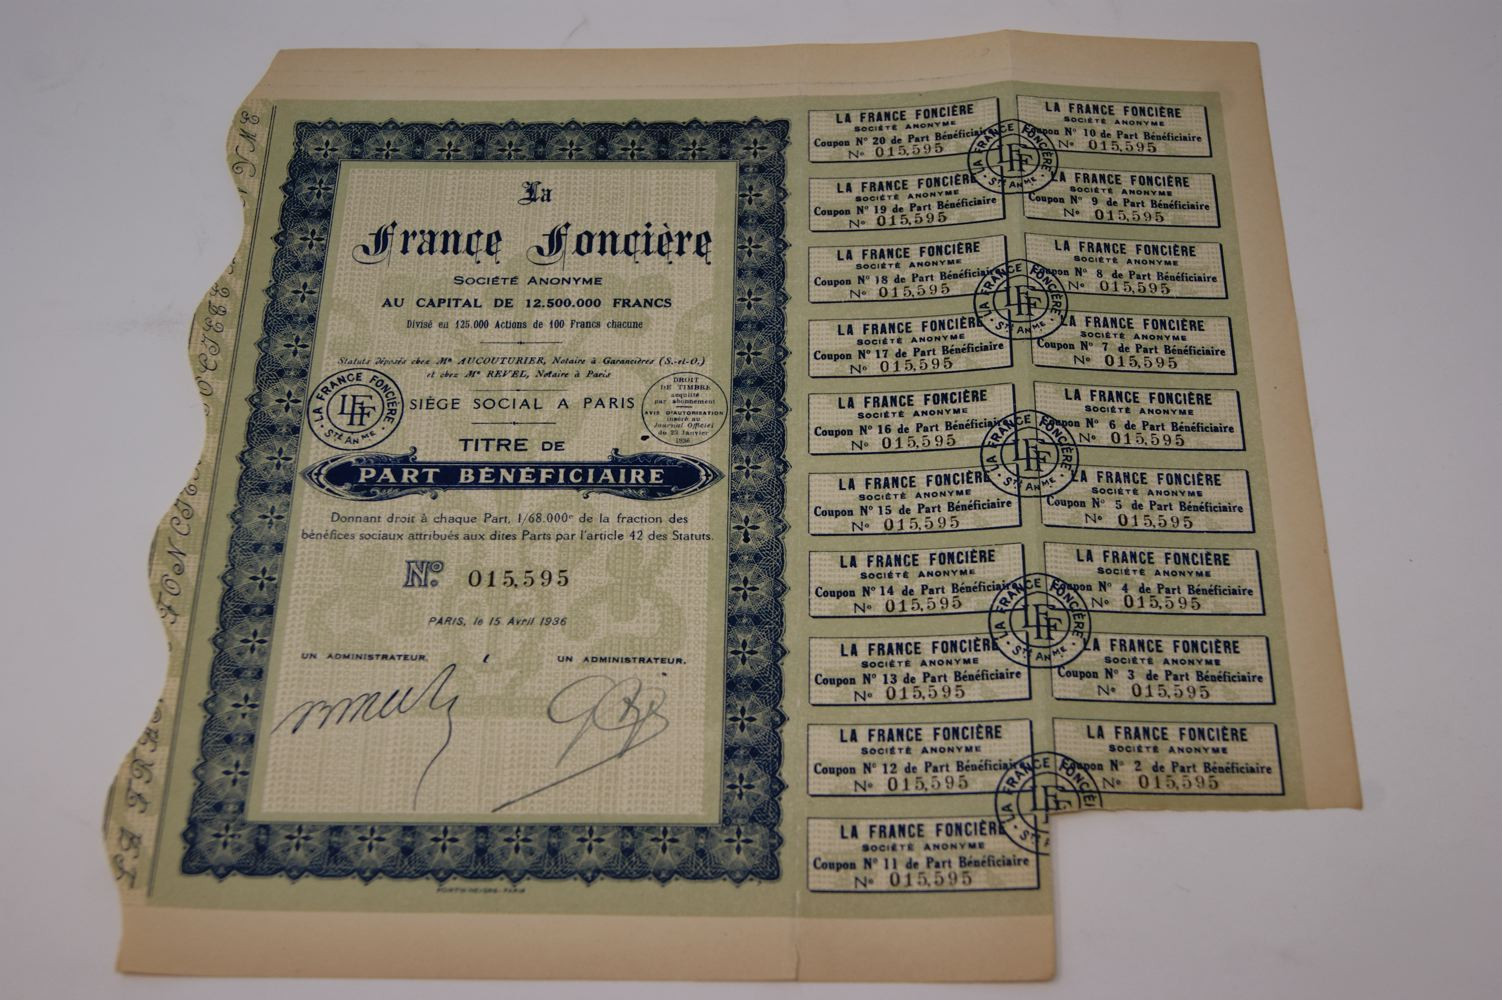 La
France Foncière
SOCIÉTÉ ANONYME
AU CAPITAL DE 12.500.000 FRANCS
Divisé en 125.000 Actions de 100 Francs chacune
Statuts déposés chez Me AUCOUTURIER, Notaire à Garancières (S.-et-O.)
et chez Me REVEL, Notaire à Paris
LA FRANCE FONCIÈRE
LFF
STÉ AN ME
SIÈGE SOCIAL A PARIS
DROIT
DE TIMBRE
acquitté
par abonnement
AVIS D'AUTORISATION
inséré au
Journal Officiel
du 23 Janvier
1936
TITRE DE
PART BÉNÉFICIAIRE
Donnant droit à chaque Part, 1/68.000e de la fraction des
bénéfices sociaux attribués aux dites Parts par l'article 42 des Statuts.
No. 015,595
PARIS, le 15 Avril 1936
UN ADMINISTRATEUR, UN ADMINISTRATEUR.
LA FRANCE FONCIÈRE
SOCIÉTÉ ANONYME
Coupon No 20 de Part Bénéficiaire
No 015,595
LA FRANCE FONCIÈRE
SOCIÉTÉ ANONYME
Coupon No 10 de Part Bénéficiaire
No 015,595
LA FRANCE FONCIÈRE
SOCIÉTÉ ANONYME
Coupon No 19 de Part Bénéficiaire
No 015,595
LA FRANCE FONCIÈRE
SOCIÉTÉ ANONYME
Coupon No 9 de Part Bénéficiaire
No 015,595
LA FRANCE FONCIÈRE
SOCIÉTÉ ANONYME
Coupon No 18 de Part Bénéficiaire
No 015,595
LA FRANCE FONCIÈRE
SOCIÉTÉ ANONYME
Coupon No 8 de Part Bénéficiaire
No 015,595
LA FRANCE FONCIÈRE
SOCIÉTÉ ANONYME
Coupon No 17 de Part Bénéficiaire
No 015,595
LA FRANCE FONCIÈRE
SOCIÉTÉ ANONYME
Coupon No 7 de Part Bénéficiaire
No 015,595
LA FRANCE FONCIÈRE
SOCIÉTÉ ANONYME
Coupon No 16 de Part Bénéficiaire
No 015,595
LA FRANCE FONCIÈRE
SOCIÉTÉ ANONYME
Coupon No 6 de Part Bénéficiaire
No 015,595
LA FRANCE FONCIÈRE
SOCIÉTÉ ANONYME
Coupon No 15 de Part Bénéficiaire
No 015,595
LA FRANCE FONCIÈRE
SOCIÉTÉ ANONYME
Coupon No 5 de Part Bénéficiaire
No 015,595
LA FRANCE FONCIÈRE
SOCIÉTÉ ANONYME
Coupon No 14 de Part Bénéficiaire
No 015,595
LA FRANCE FONCIÈRE
SOCIÉTÉ ANONYME
Coupon No 4 de Part Bénéficiaire
No 015,595
LA FRANCE FONCIÈRE
SOCIÉTÉ ANONYME
Coupon No 13 de Part Bénéficiaire
No 015,595
LA FRANCE FONCIÈRE
SOCIÉTÉ ANONYME
Coupon No 3 de Part Bénéficiaire
No 015,595
LA FRANCE FONCIÈRE
SOCIÉTÉ ANONYME
Coupon No 12 de Part Bénéficiaire
No 015,595
LA FRANCE FONCIÈRE
SOCIÉTÉ ANONYME
Coupon No 2 de Part Bénéficiaire
No 015,595
LA FRANCE FONCIÈRE
SOCIÉTÉ ANONYME
Coupon No 11 de Part Bénéficiaire
No 015,595